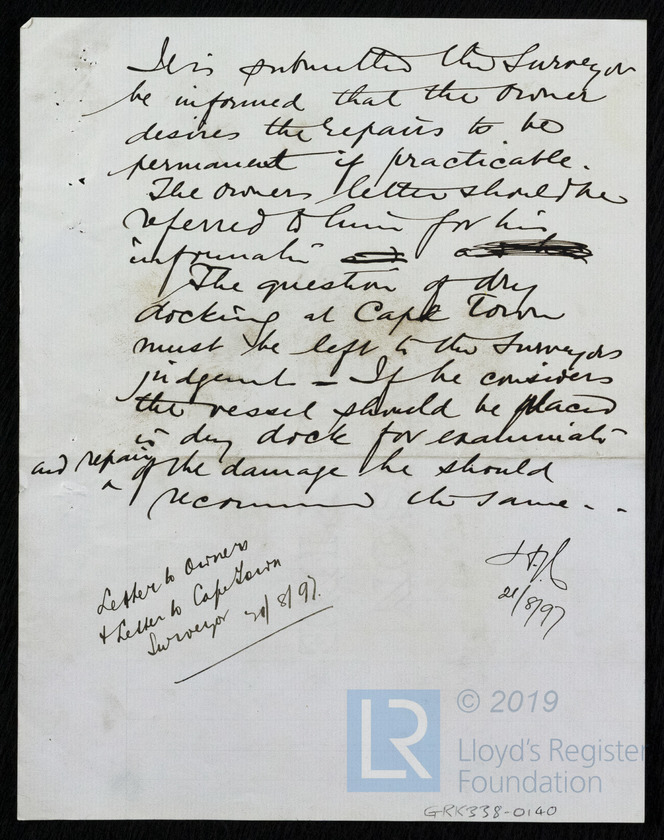 It is submitted the Surveyor
be informed that the Owner
desires the repairs to be
permanent if practicable.
The Owners letter should be
referred to him for his
informatn
The question of dry
docking at Cape Town
must be left to the Surveyors
judgment - If he considers
the vessel should be placed
in dry dock for examinatn
and repair of the damage he should
recommend the same. .
Letter to Owners
+ Letter to Cape Town
Surveyor /8/97.
21/8/97
LR
© 2019
Lloyd's Register
Foundation
GRK338-0140